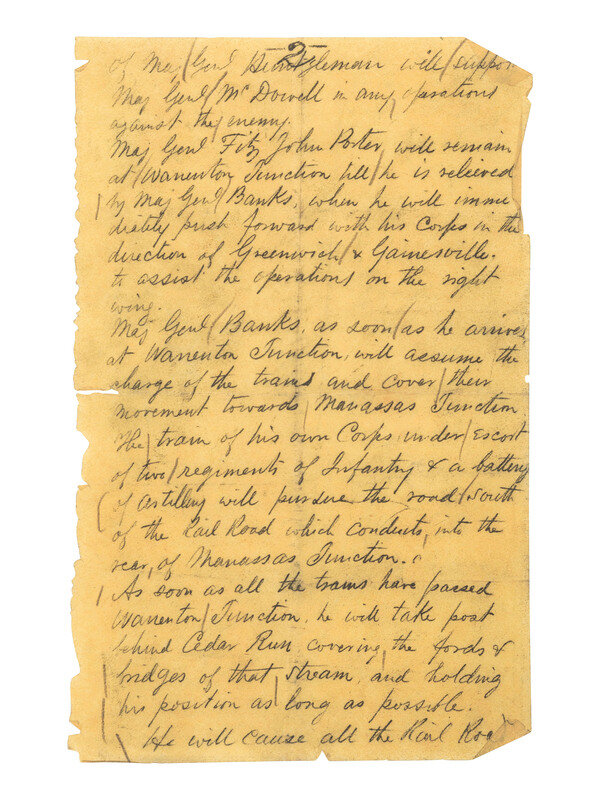 2
of Maj Genl Heintzleman will suppor
Maj Genl McDowell in any operations
against the enemy.
Maj Genl Fitz John Porter, will remain
at Warrenton Junction till he is relieved
by Maj Genl Banks, when he will imme
diately push forward with his Corps in the
direction of Greenwich & Gainesville.
to assist the operations on the right
wing.
Maj Genl Banks, as soon as he arrives
at Warrenton Junction, will assume the
charge of the trains and cover their
movement towards Manassas Junction
The train of his own Corps under Escort
of two regiments of Infantry & a battery
of Artillery will pursue the road South
of the Rail Road which conducts, into the
rear, of Manassas Junction.
As soon as all the trains have passed
Warrenton Junction, he will take post
behind Cedar Run, covering the fords &
bridges of that stream, and holding
his position as long as possible.
He will cause all the Rail Roa